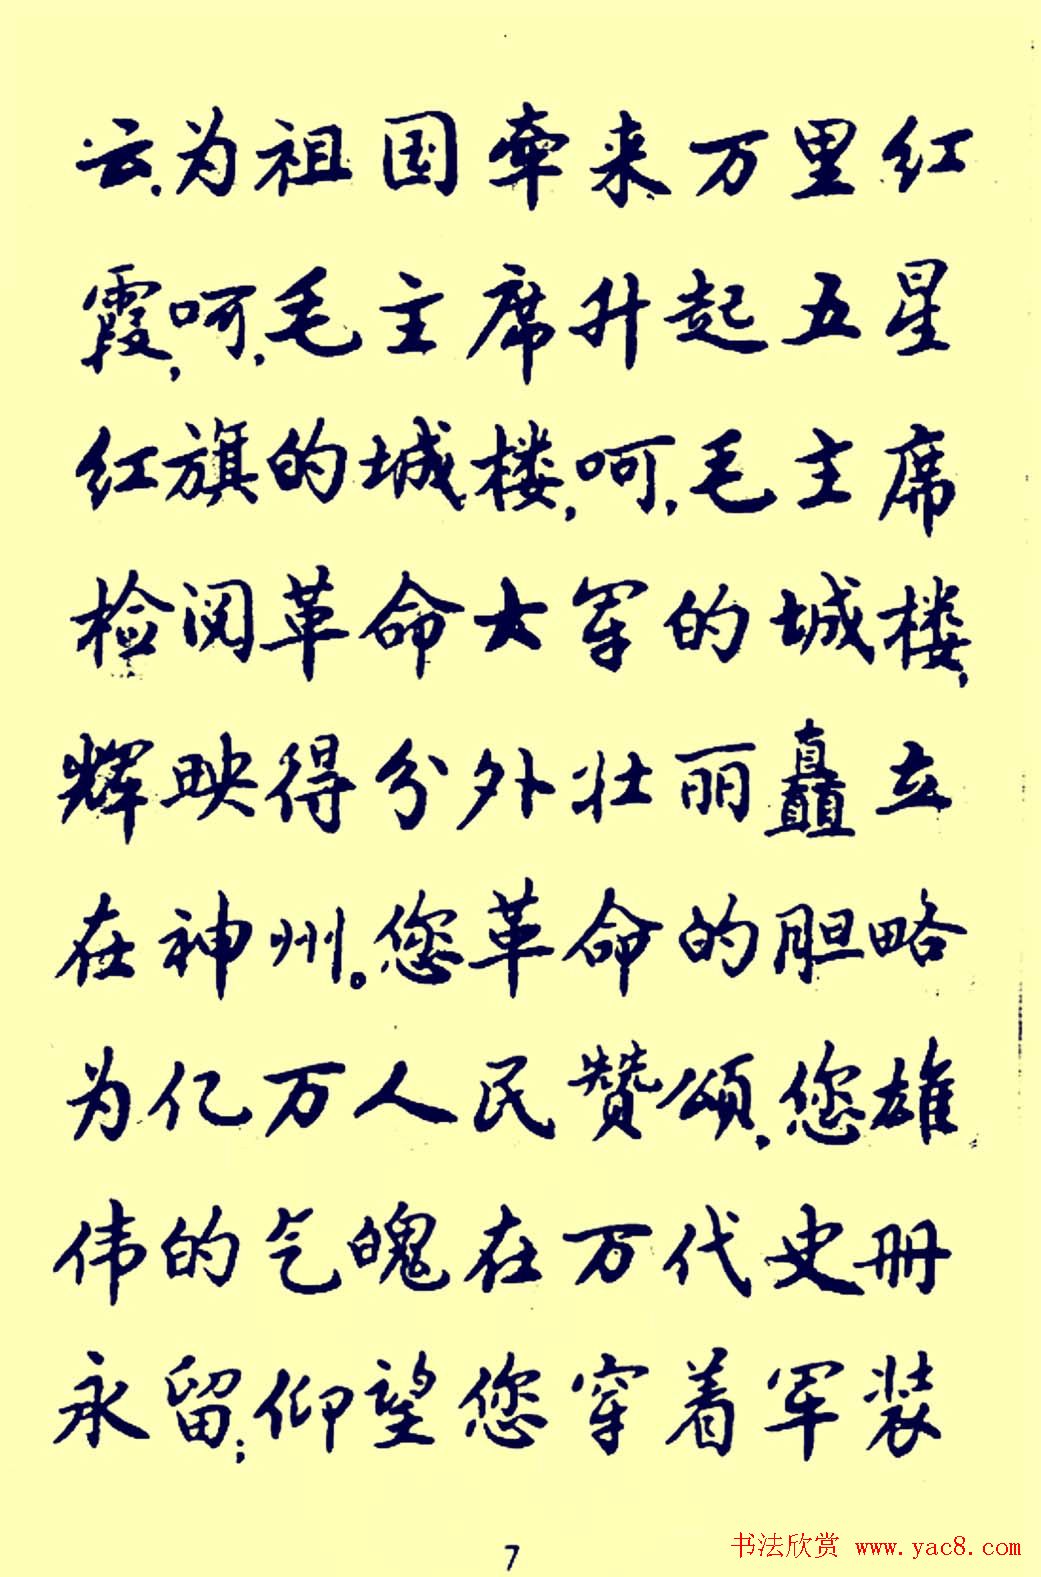 云,为祖国牵来万里红
霞,呵,毛主席升起五星
红旗的城楼,呵,毛主席
检阅革命大军的城楼,
辉映得分外壮丽矗立
在神州。您革命的胆略
为亿万人民赞颂,您雄
伟的气魄在万代史册
永留;仰望您穿着军装
7
书法欣赏 www.yac8.com